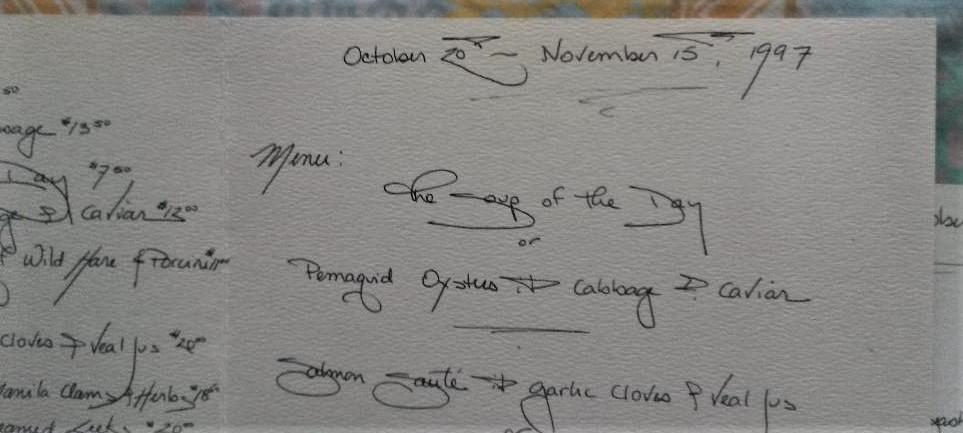 50
$13 50
Day $7 50
& caviar $12 00
Wild Hare & Porcini
cloves & Veal jus $20 00
Manila Clams & Herbs $18
$20 00
October 20th – November 15, 1997
Menu:
The Soup of the Day
or
Pemaquid Oysters & cabbage & caviar
Salmon Sauté & garlic cloves & Veal jus
or